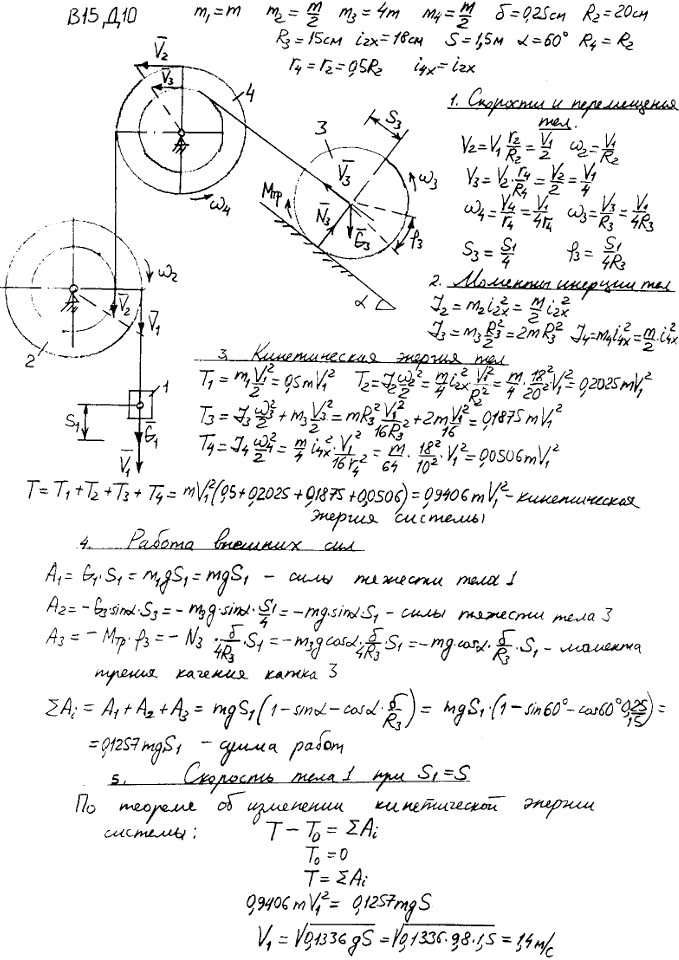 В15 Д10 m₁=m m₂=m/2 m₃=4m m₄=m/2 δ=0,25см R₂=20см
R₃=15см i₂ₓ=18см S=1,5м α=60° R₄=R₂
r₄=r₂=0,5R₂ i₄ₓ=i₂ₓ
V̄₂
V̄₃
4
ω₄
S₃
3
V̄₃
ω₃
Mтр
N̄₃
Ḡ₃
φ₃
α
ω₂
V̄₂
V̄₁
2
1
S₁
Ḡ₁
V̄₁
1. Скорости и перемещения
тел.
V₂=V₁ r₂/R₂=V₁/2 ω₂=V₁/R₂
V₃=V₂·r₄/R₄=V₂/2=V₁/4
ω₄=V₃/r₄=V₁/4r₄ ω₃=V₃/R₃=V₁/4R₃
S₃=S₁/4 φ₃=S₁/4R₃
2. Моменты инерции тел
J₂=m₂i₂ₓ²=m/2 i₂ₓ²
J₃=m₃R₃²/2=2mR₃² J₄=m₄i₄ₓ²=m/2·i₄ₓ²
3. Кинетическая энергия тел
T₁=m₁V₁²/2=0,5mV₁² T₂=J₂ω₂²/2=m/4 i₂ₓ²·V₁²/R₂²=m/4·18²/20²V₁²=0,2025mV₁²
T₃=J₃ω₃²/2+m₃V₃²/2=mR₃²V₁²/16R₃²+2mV₁²/16=0,1875mV₁²
T₄=J₄ω₄²/2=m/4 i₄ₓ²·V₁²/16r₄²=m/64·18²/10²·V₁²=0,0506mV₁²
T=T₁+T₂+T₃+T₄=mV₁²(0,5+0,2025+0,1875+0,0506)=0,9406mV₁² - кинетическая
энергия системы
4. Работа внешних сил
A₁=G₁·S₁=m₁gS₁=mgS₁ – силы тяжести тела 1
A₂=-G₃sinα·S₃=-m₃g·sinα·S₁/4=-mgsinα·S₁ - силы тяжести тела 3
A₃=-Mтр·φ₃=-N₃·δ/4R₃·S₁=-m₃gcosα·δ/4R₃·S₁=-mg·cosα·δ/R₃·S₁ - момента
трения качения катка 3
ΣAᵢ=A₁+A₂+A₃=mgS₁(1-sinα-cosα·δ/R₃)=mgS₁·(1-sin60°-cos60°0,25/15)=
=0,1257mgS₁ – сумма работ
5. Скорость тела 1 при S₁=S
По теореме об изменении кинетической энергии
системы: T-T₀=ΣAᵢ
T₀=0
T=ΣAᵢ
0,9406mV₁²=0,1257mgS
V₁=√0,1336gS=√0,1336·9,8·1,5=1,4м/с